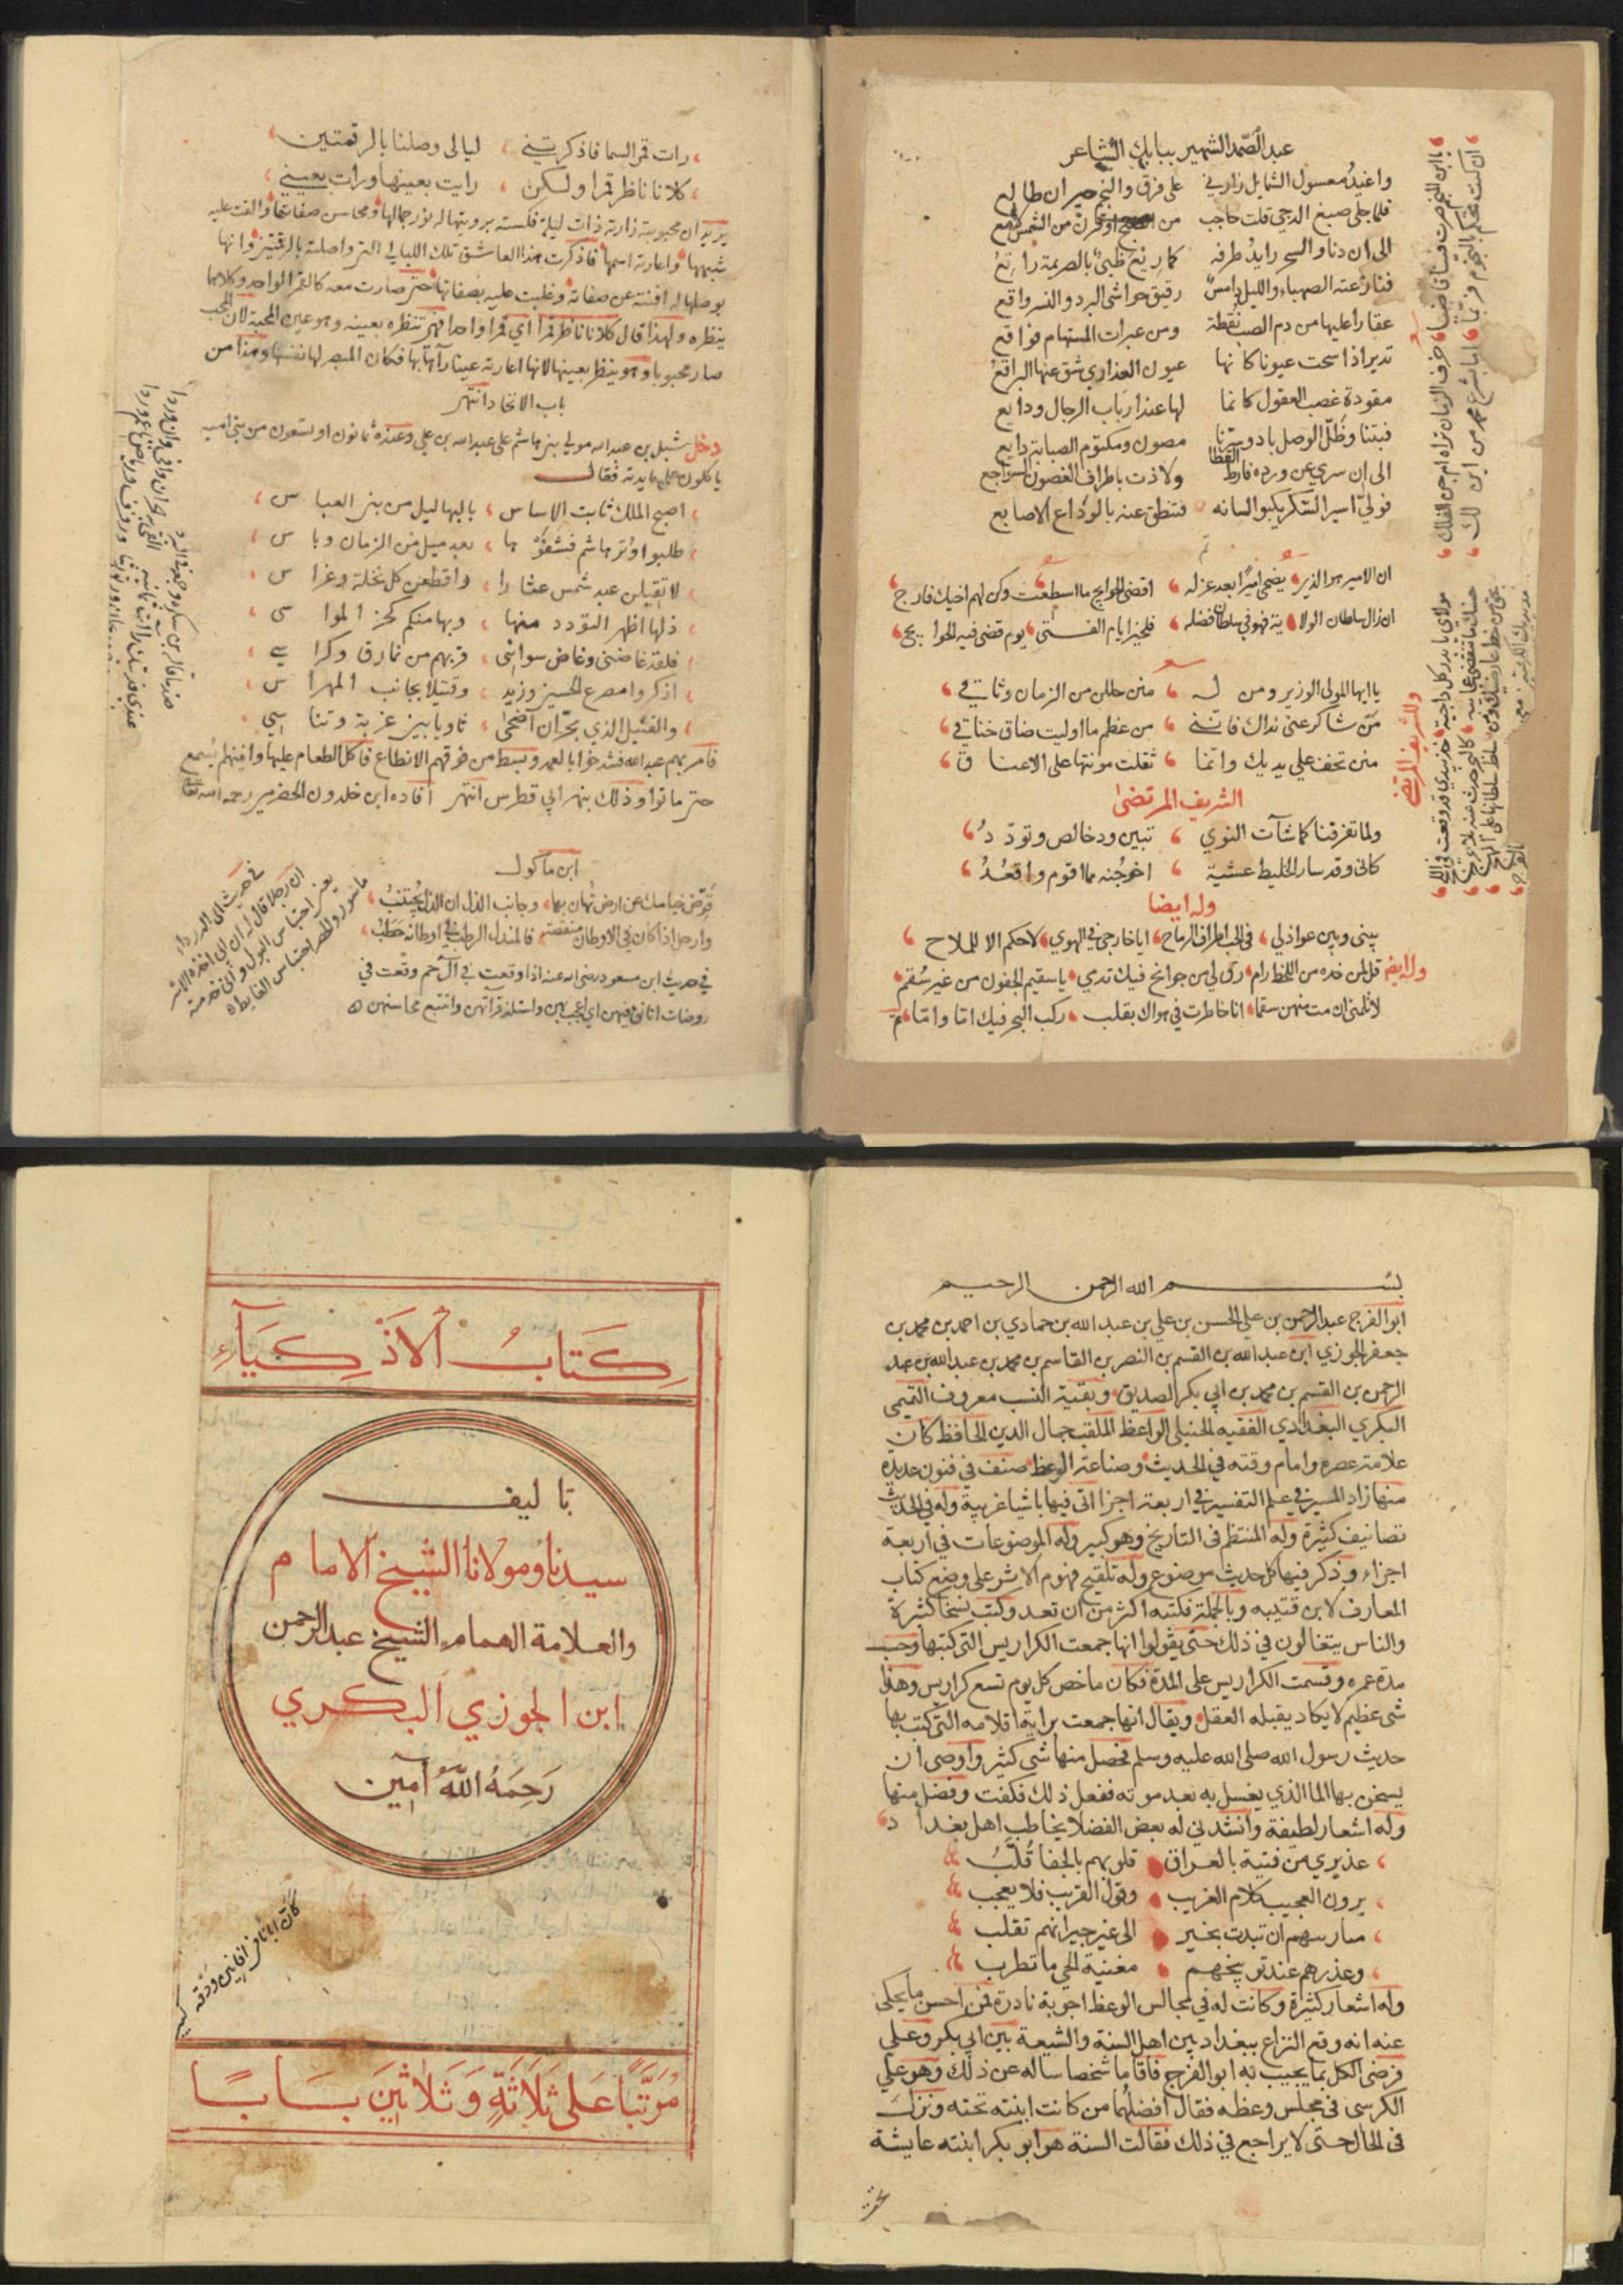 عبد الصمد الشهير ببابك الشاعر
واغيد معسول الشمايل زارني على فرق والنجم حيران طالع
فلما جلى صبغ الدجى قلت حاجب من الصبح او قرن من الشمس لامع
الى ان دنا والسحر رايد طرفه كما ريع ظبي بالصريمة راتع
فنازعته الصهباء والليل دامس رقيق حواشي البرد والنسر واقع
عقارا عليها من دم الصب نقطة ومن عبرات المستهام فواقع
تدير اذا سحت عيونا كانها عيون العذارى شق عنها البراقع
مقودة غصب العقول كانما لها عند ارباب الرجال ودايع
فبتنا وظل الوصل باد وسرنا مصون ومكتوم الصبابة ذايع
الى ان سرى عن ورده فارط القطا ولاذت باطراف الغصون السواجع
فولى اسير السكر يكبو لسانه فتنطق عنه بالوداع الاصابع
ان الامير هو الذي يضحى اميرا بعد عزله اقضى الحوايج ما استطعت وكن لهم اخيك فارج
ان زال سلطان الولاية فهو في سلطان فضله فلخير ايام الفتى يوم قضى فيه الحوايج
يا ايها المولى الوزير ومن له منن حللن من الزمان وثاقي
من شاكر عني نداك فانني من عظم ما اوليت ضاق خناقي
منن تخف على يديك وانما ثقلت مونتها على الاعناق
الشريف المرتضى
ولما تفرقنا كما شآت النوى تبين ود خالص وتودد
كاني وقد سار الخليط عشية اخو جنة مما اقوم واقعد
وله ايضا
بيني وبين عواذلي في الحب اطراف الرماح انا خارجي في الهوى لا حكم الا للملاح
وله ايضا قل لمن خده من اللحظ دام رق لي من جوانح فيك تدمي يا سقيم الجفون من غير سقم
لا تلمني ان مت منهن سقما انا خاطرت في هواك بقلب ركب البحر فيك اما واما
وللشريف المرتضى
رات قمر السما فاذكرتني ليالي وصلنا بالرقمتين
كلانا ناظر قمرا ولكن رايت بعينها ورات بعيني
يريد ان محبوبته زارته ذات ليلة فكسته برويتها له نور جمالها ومحاسن صفاتها والقت عليه
شبهها واعارته اسمها فاذكرت هذا العاشق تلك الليالي التي واصلته بالرقمتين وانها
بوصلها له افنته عن صفاته وغلبت عليه بصفاتها حتى صارت معه كالقمر الواحد وكلاهما
ينظره ولهذا قال كلانا ناظر قمرا اي قمرا واحدا فهي تنظره بعينه وهو عين المحبة لان المحب
صار محبوبا وهو ينظر بعينها لانها اعارته عينا رآها بها فكان المبصر لها نفسها وهذا من
باب الاتحاد انتهى
دخل شبل بن عبد الله مولى بني هاشم على عبد الله بن علي وعنده ثمانون او تسعون من بني اميه
ياكلون على مايدته فقال
اصبح الملك ثابت الاساس بالبهاليل من بني العباس
طلبوا وتر هاشم فشفوها بعد ميل من الزمان وباس
لا تقيلن عبد شمس عثارا واقطعن كل نخلة وغراس
ذلها اظهر التودد منها وبها منكم كحز المواسى
فلقد غاضنى وغاض سوائى قربهم من نمارق وكراسي
اذكروا مصرع الحسين وزيد وقتيلا بجانب المهراس
والقتيل الذي بحران اضحى ثاويا بين غربة وتناسي
فامر بهم عبد الله فشدخوا بالعمد وبسط من فوقهم الانطاع فاكل الطعام عليها وانينهم يسمع
حتى ماتوا وذلك بنهر ابي فطرس انتهى افاده ابن خلدون الحضرمي رحمه الله تعالى
ابن ماكولا
قوض خيامك عن ارض تهان بها وجانب الذل ان الذل يجتنب
وارحل اذا كان في الاوطان منقصة فالمندل الرطب في اوطانه حطب
في حديث ابن مسعود رضى الله عنه اذا وقعت في آل حم وقعت في
روضات اتانق فيهن اي اعجب بهن واستلذ قرآتهن واتتبع محاسنهن
بسم الله الرحمن الرحيم
ابو الفرج عبد الرحمن بن علي الحسن بن علي بن عبد الله بن حمادي بن احمد بن محمد بن
جعفر الجوزي ابن عبد الله بن القسم بن النصر بن القاسم بن محمد بن عبد الله بن عبد
الرحمن بن القسم بن محمد بن ابي بكر الصديق وبقية النسب معروف التيمي
البكري البغدادي الفقيه الحنبلي الواعظ الملقب جمال الدين الحافظ كان
علامة عصره وامام وقته في الحديث وصناعة الوعظ صنف في فنون عديدة
منها زاد المسير في علم التفسير في اربعة اجزا اتى فيها باشيا غريبة وله في الحديث
تصانيف كثيرة وله المنتظم في التاريخ وهو كبير وله الموضوعات في اربعة
اجزاء وذكر فيها كل حديث موضوع وله تلقيح فهوم الاثر على وضع كتاب
المعارف لابن قتيبه وبالجملة فكتبه اكثر من ان تعد وكتب نسخا كثيرة
والناس يتغالون في ذلك حتى يقولوا انها جمعت الكراريس التي كتبها وحسب
مدة عمره وقسمت الكراريس على المدة فكان ما خص كل يوم تسع كراريس وهذا
شى عظيم لا يكاد يقبله العقل ويقال انها جمعت براية اقلامه التي كتب بها
حديث رسول الله صلى الله عليه وسلم فحصل منها شى كثير واوصى ان
يسخن بها الما الذي يغسل به بعد موته ففعل ذلك فكفت وفضل منها
وله اشعار لطيفة وانشدني له بعض الفضلا يخاطب اهل بغداد
عذيري من فتية بالعراق قلوبهم بالجفا قلب
يرون العجيب كلام الغريب وقول القريب فلا يعجب
ميازيبهم ان تبدت بخير الى غير جيرانهم تقلب
وعذرهم عند توبيخهم مغنية الحي ما تطرب
وله اشعار كثيرة وكانت له في مجالس الوعظ اجوبة نادرة فمن احسن ما يحكى
عنه انه وقع النزاع ببغداد بين اهل السنة والشيعة بين ابي بكر وعلي
فرضى الكل بما يجيب به ابو الفرج فاقاما شخصا ساله عن ذلك وهو علي
الكرسى في مجلس وعظه فقال افضلهما من كانت ابنته تحته ونزل
في الحال حتى لا يراجع في ذلك فقالت السنة هو ابو بكر ابنته عايشة
كتاب الاذكياء
تاليف
سيدنا ومولانا الشيخ الامام
والعلامة الهمام الشيخ عبد الرحمن
ابن الجوزي البكري
رحمه الله آمين
مرتبا على ثلاثة وثلاثين بابا